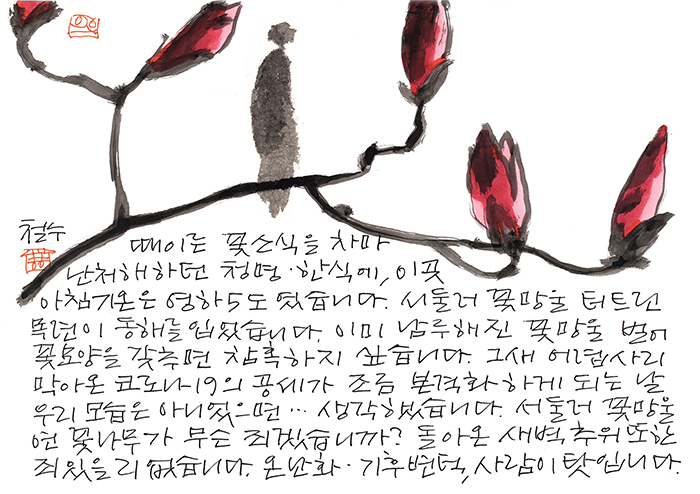 철수
때이른 꽃소식을 차마
난처해하던 청명·한식에, 이곳
아침기온은 영하5도 였습니다. 서둘러 꽃망울 터트린
목련이 동해를 입었습니다. 이미 남루해진 꽃망울 벌어
꽃모양을 갖추면 참혹하지 싶습니다. 그새 어렵사리
막아온 코로나-19의 공세가 조금 본격화하게 되는 날
우리 모습은 아니었으면… 생각했습니다. 서둘러 꽃망울
연 꽃나무가 무슨 죄겠습니까? 돌아온 새벽추위 또한
죄 있을리 없습니다. 온난화·기후변덕, 사람이 탓입니다.